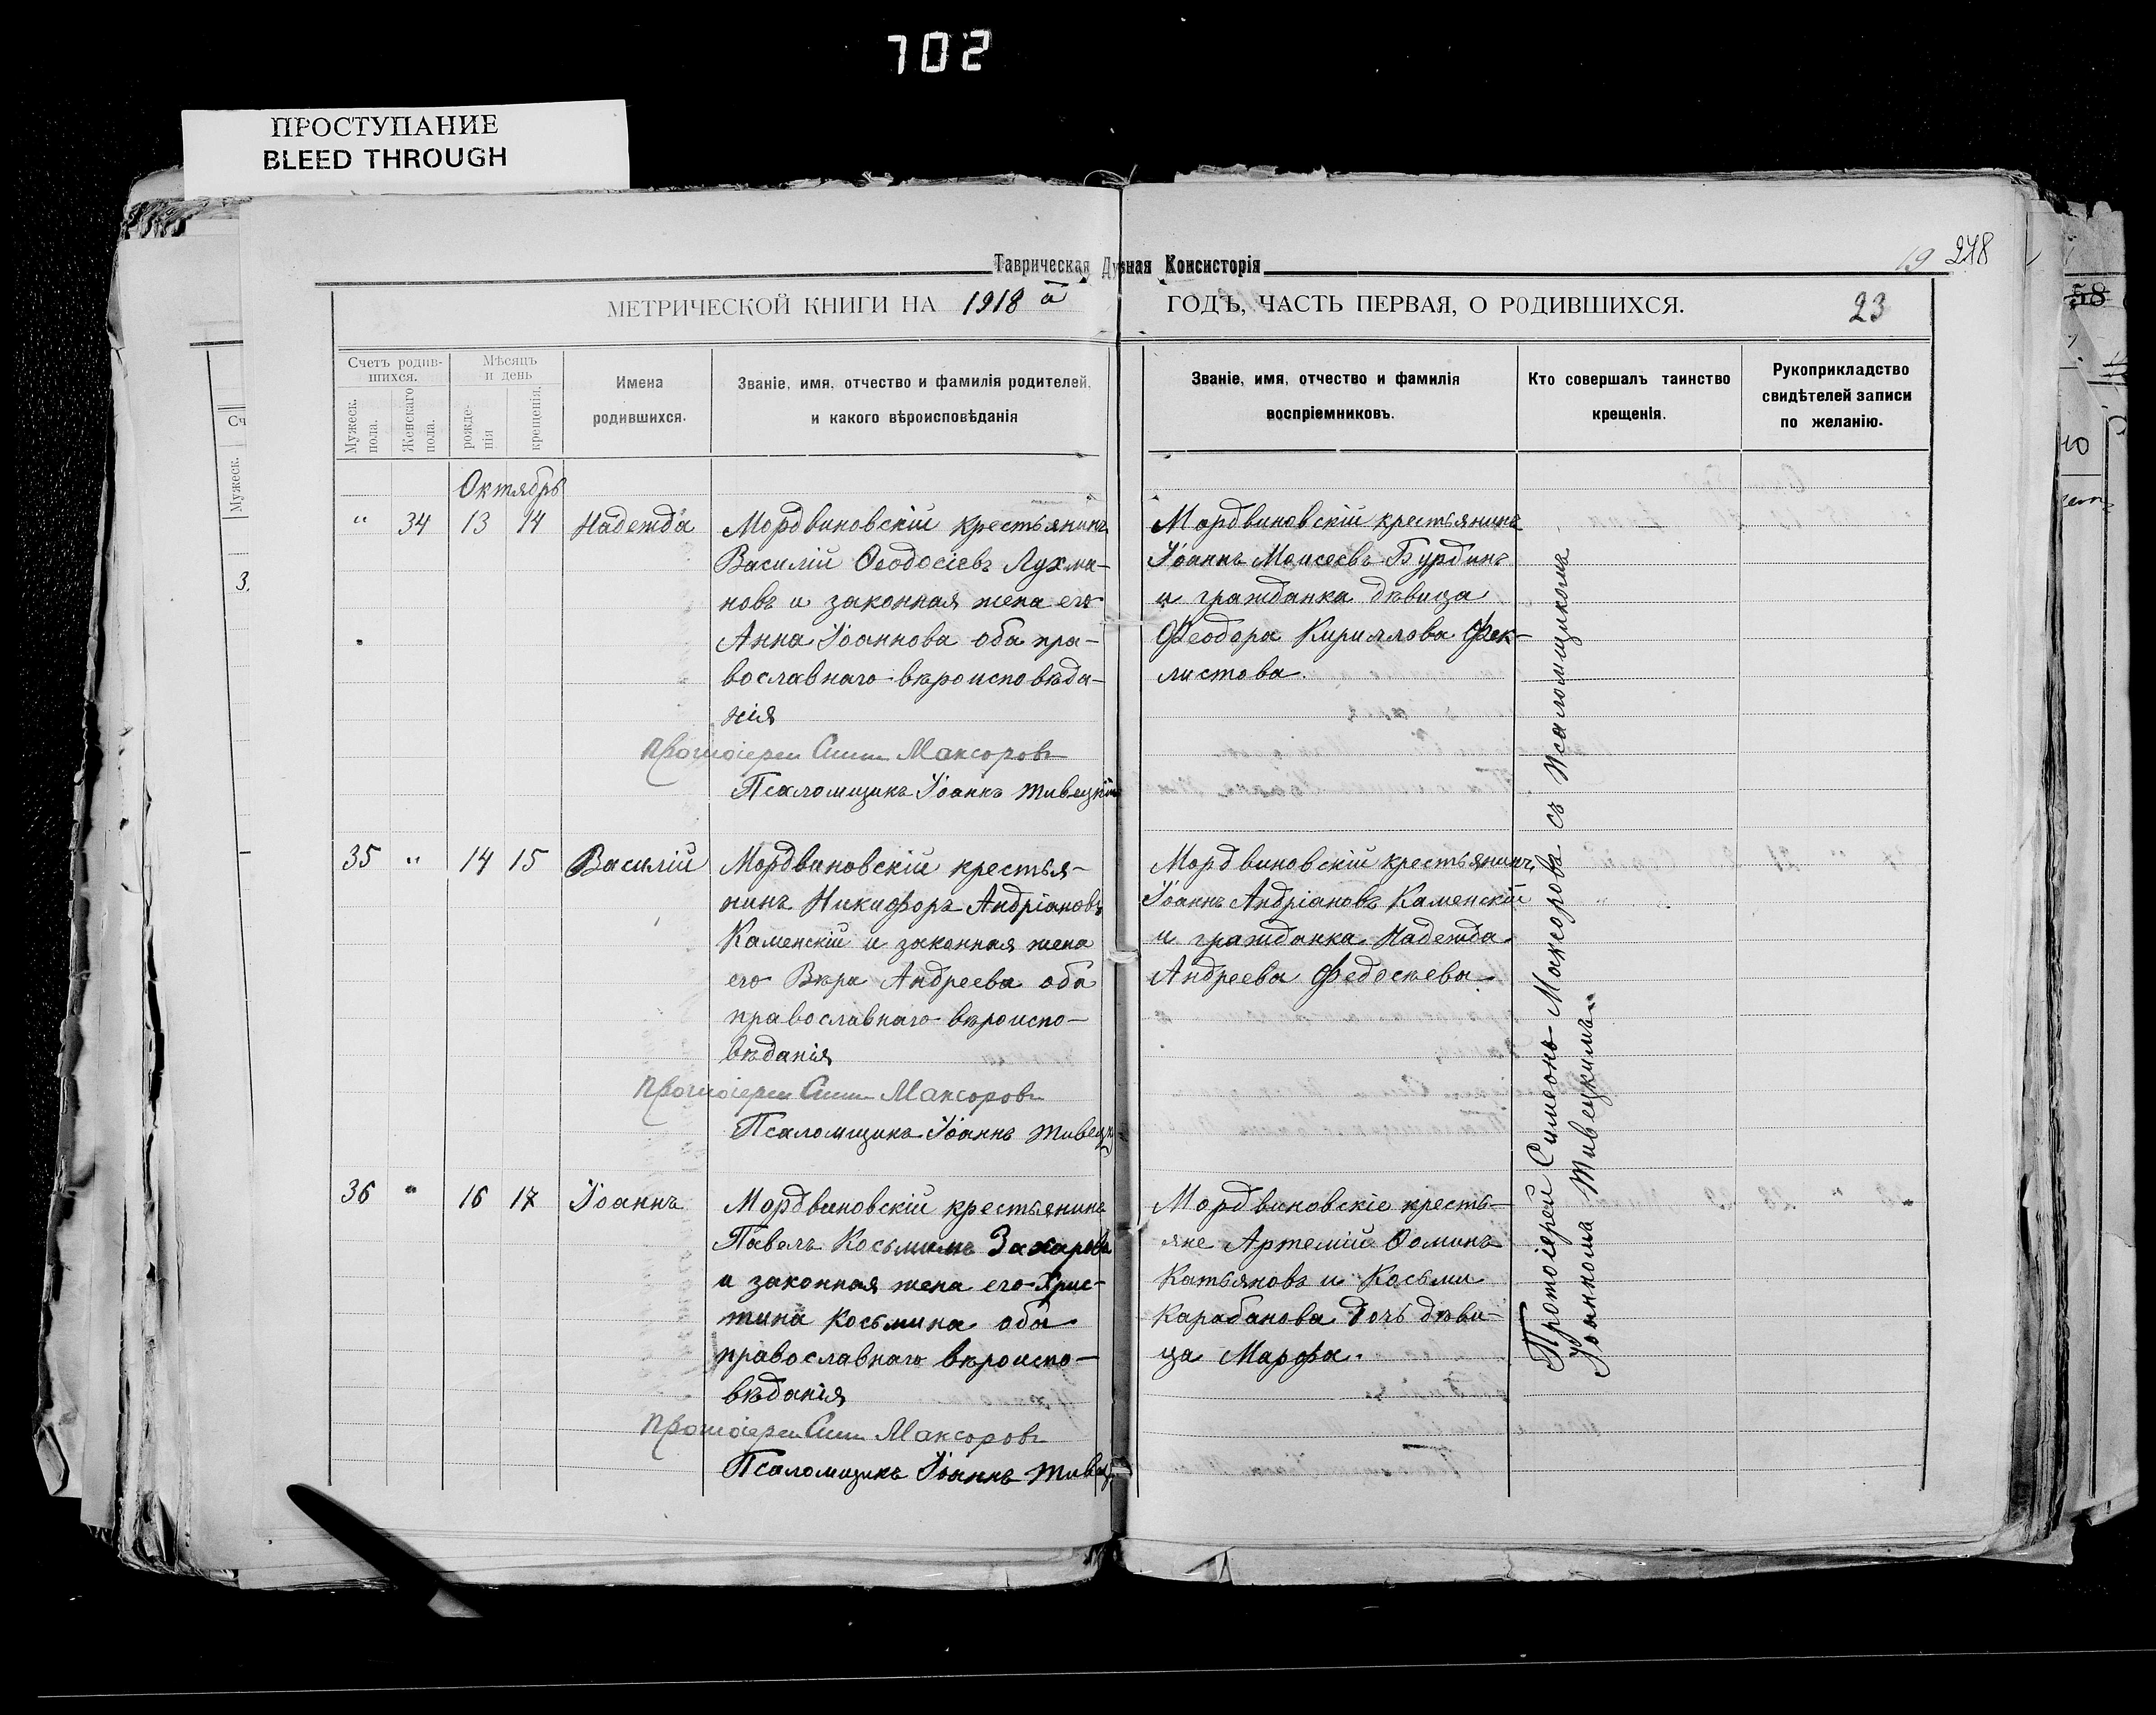 702
ПРОСТУПАНИЕ
BLEED THROUGH
Таврическая Духная Консисторія
19 278
МЕТРИЧЕСКОЙ КНИГИ НА 1918 й ГОДЪ, ЧАСТЬ ПЕРВАЯ, О РОДИВШИХСЯ. 23
Счетъ родив-
шихся.
Мужеск.
пола.
Женскаго
пола.
Мѣсяцъ
и день
рожде-
нія
крещенія.
Имена
родившихся.
Званіе, имя, отчество и фамилія родителей,
и какого вѣроисповѣданія
Званіе, имя, отчество и фамилія
воспріемниковъ.
Кто совершалъ таинство
крещенія.
Рукоприкладство
свидѣтелей записи
по желанію.
Октябрь
" 34 13 14 Надежда
Мордвиновскій крестьянинъ
Василій Ѳеодосіевъ Лухма-
новъ и законная жена его
Анна Іоаннова оба пра-
вославнаго вѣроисповѣда-
нія
Протоіерей Сим Максоровъ
Псаломщикъ Іоаннъ Живецкій
Мордвиновскій крестьянинъ
Іоаннъ Моисеевъ Бурдинъ
и гражданка дѣвица
Феодора Кириллова Фек-
листова.
35 " 14 15 Василій
Мордвиновскій крестья-
нинъ Никифоръ Андріановъ
Каменскій и законная жена
его Вѣра Андреева оба
православнаго вѣроиспо-
вѣданія
Протоіерей Сим Максоровъ
Псаломщикъ Іоаннъ Живецк
Мордвиновскій крестьянинъ
Іоаннъ Андріановъ Каменскій
и гражданка Надежда
Андреева Федосѣева
36 " 16 17 Іоаннъ
Мордвиновскій крестьянинъ
Павелъ Косьминъ Захаровъ
и законная жена его Хрис-
тина Косьмина оба
православнаго вѣроиспо-
вѣданія
Протоіерей Сим Максоровъ
Псаломщикъ Іоаннъ Живец
Мордвиновскіе кресть-
яне Артемій Ѳоминъ
Катьяновъ и Косьмы
Карабанова дочь дѣви-
ца Марфа.
Протоіерей Симеонъ Максоровъ съ Псаломщикомъ
Іоанномъ Живецкимъ
Сч
Мужеск.
3.
58